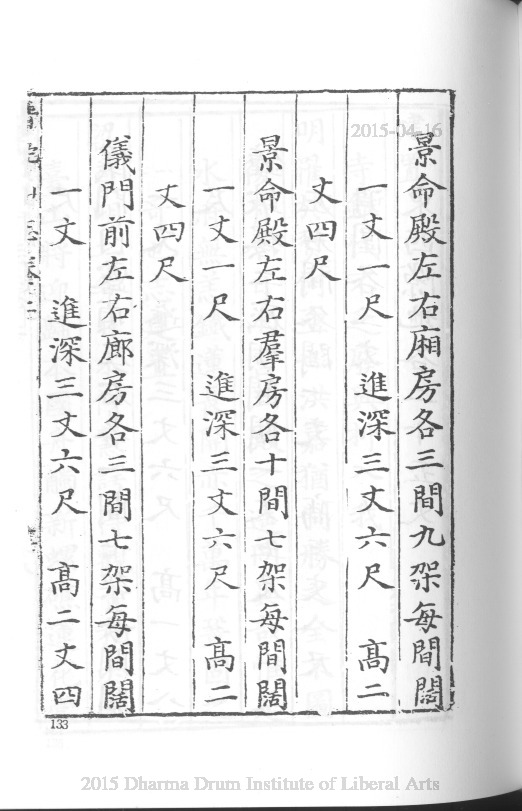 2015-04-16
景命殿左右廂房各三間九架每間闊
一丈一尺　進深三丈六尺　高二
丈四尺
景命殿左右羣房各十間七架每間闊
一丈一尺　進深三丈六尺　高二
丈四尺
儀門前左右廊房各三間七架每間闊
一丈　進深三丈六尺　高二丈四
133
2015 Dharma Drum Institute of Liberal Arts